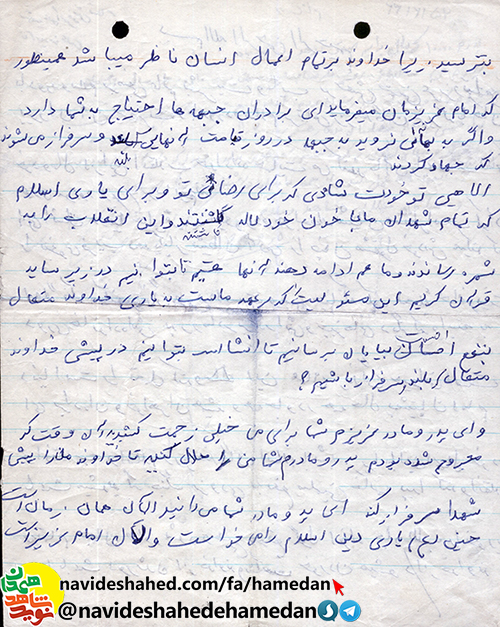 بترسید. زیرا خداوند بر تمام اعمال انسان ناظر میباشد همینطور
که امام عزیزمان میفرماید ای برادران جبهه ها احتیاج به شما دارد
واگر به نروید به جبهه در روز قیامت آنهایی بلند و سرفراز می شوند
که جهاد کردند
الاهی تو خودت شاهدی که برای رضای تو و برای یاری اسلام
که تمام شهدای ما با خون خود لاله کاشتند و این انقلاب را به
ثمره رساندند و ما هم ادامه دهنده آنها هستیم تا بتوانیم در زیر سایه
قرآن کریم این مسئولیت که بر عهد ماست به یاری خداوند متعال
بنفع به پایان برسانیم تا انشااله بتوانیم در پیش خداوند
متعال سربلند و سرفراز باشیم؟
وای پدر و مادر عزیزم شما برای من خیلی زحمت کشیدید آن وقت که
مجروح شده بودم پدر و مادرم شما من را حلال کنید تا خداوند مارا پیش
شهدا سرفراز کند ای پدر و مادر شما می دانید الان همان زمان است
حسین یاری دین اسلام را می خواست و الان امام عزیز است
نوید شاهد همدان
navideshahed.com/fa/hamedan
@navideshahedehamedan